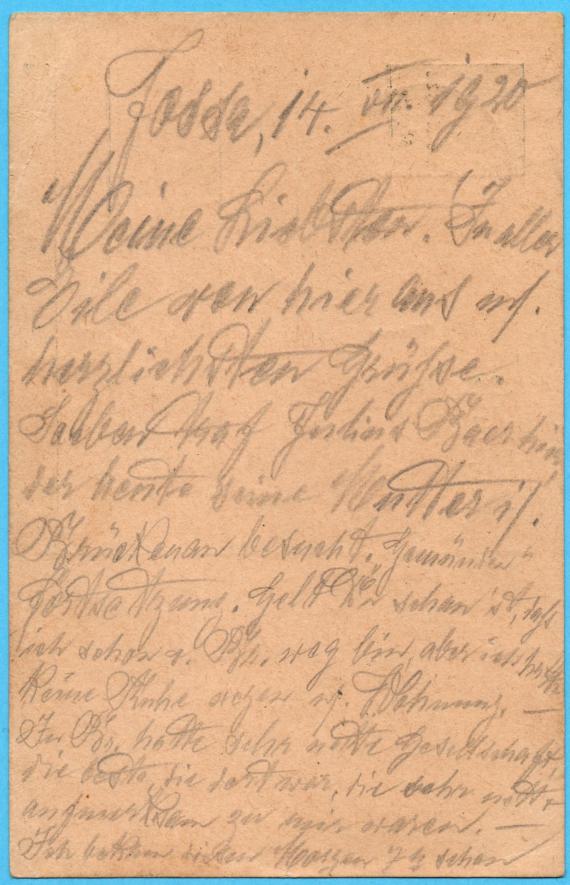 Jossa, 14. VII. 1920
Meine Liebsten. In aller
Eile von hier aus m.
herzlichsten Grüsse.
Soeben traf Julius Baer hier
der heute seine Mutter i/
Brückenau besucht. Gemünden
Fortsetzung. Gelt Ihr schaut, daß
ich schon v. Br. weg bin, aber ich hatte
keine Ruhe wegen m. Wohnung. —
In Br. hatte sehr nette Gesellschaft,
die beste, die dort war, die sehr nett &
aufmerksam zu mir waren. —
Ich bekam diesen Morgen schon